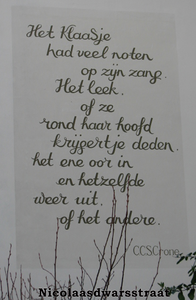 Het Klaasje
had veel noten
op zijn zang.
Het leek.
of ze
rond haar hoofd
krijgertje deden.
het ene oor in
en hetzelfde
weer uit.
of het andere.
CCSCrone
Nicolaasdwarsstraat